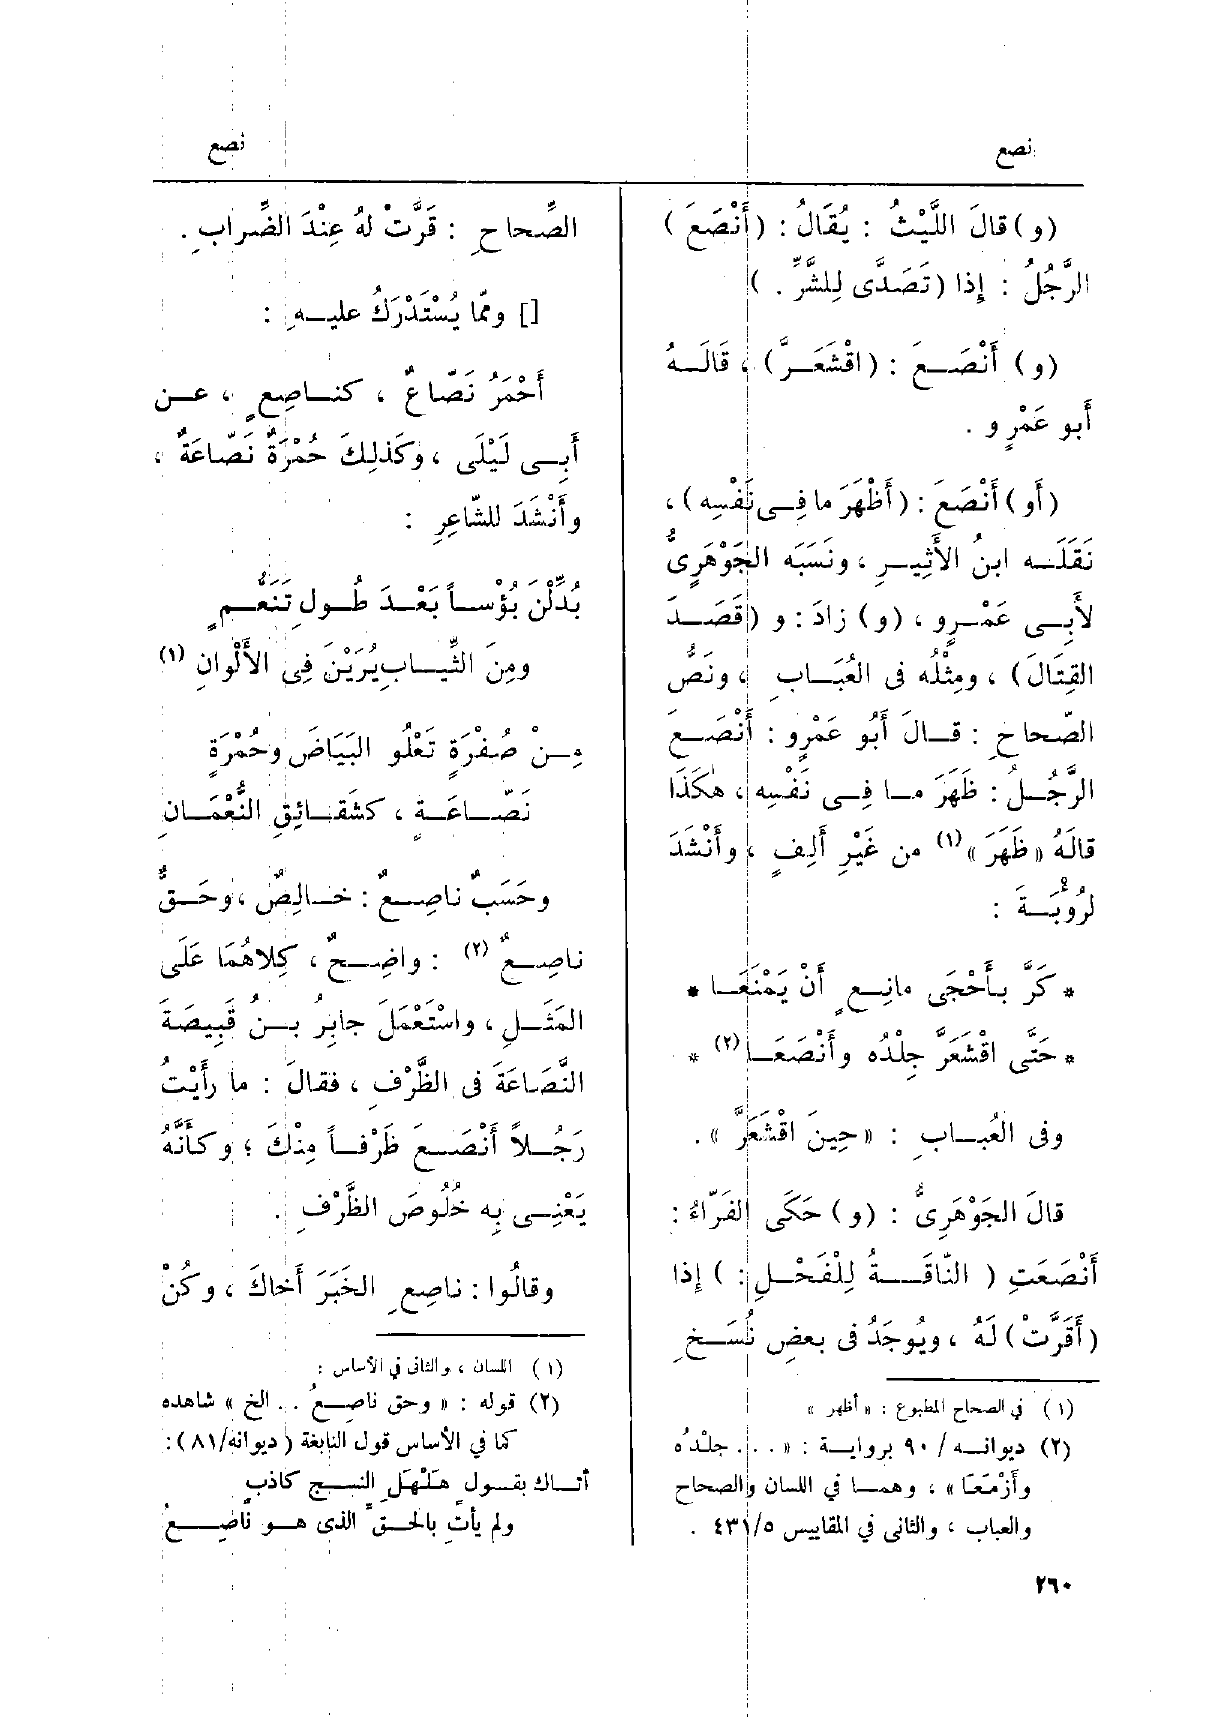 نصع
نصع
(و) قالَ اللَّيْثُ : يُقَالُ : (أَنْصَعَ)
الرَّجُلُ : إِذا (تَصَدَّى لِلشَّرِّ . )
(و) أَنْصَـعَ : (اقْشَعَـرَّ) ، قَالَـهُ
أَبو عَمْرٍو .
(أَو) أَنْصَعَ : (أَظْهَرَ ما فِـى نَفْسِه) ،
نَقَلَـه ابنُ الأَثِيـرِ ، ونَسَبَه الجَوْهَرِىُّ
لأَبِـى عَمْـرٍو ، (و) زادَ : و (قَصَـدَ
القِتَالَ) ، ومِثْلُه فى العُبَـابِ ، ونَصُّ
الصّحاحِ : قـالَ أَبُو عَمْرٍو : أَنْصَـعَ
الرَّجُـلُ : ظَهَرَ مـا فِـى نَفْسِه ، هٰكَذَا
قالَهُ «ظَهَرَ» (١) من غَيْرِ أَلِفٍ ، وأَنْشَدَ
لرُؤبَـةَ :
* كَرَّ بأَحْجَى مانِـعٍ أَنْ يَمْنَعَـا *
* حَتَّى اقْشَعَرَّ جِلْدُه وأَنْصَعَـا (٢) *
وفى العُبـابِ : «حِينَ اقْشَعَرَّ» .
قالَ الجَوْهَرِىُّ : (و) حَكَى الفَرّاءُ :
أَنْصَعَتِ ( النّاقَـةُ لِلْفَحْـلِ : ) إِذا
(أَقَرَّتْ) لَهُ ، ويُوجَدُ فى بعضِ نُسَـخِ
(١) فى الصحاح المطبوع : «أظهر»
(٢) ديوانـه / ٩٠ بروايـة : « . . . جلْدُه
وأَزْمَعَا» ، وهمـا فى اللسان والصحاح
والعباب ، والثانى فى المقاييس ٤٣١/٥ .
٢٦٠
الصِّحاحِ : قَرَّتْ لهُ عِنْدَ الضِّرابِ .
[] وممّا يُسْتَدْرَكُ عليـهِ :
أَحْمَرُ نَصّاعٌ ، كنـاصِعٍ ، عـن
أَبِـى لَيْلَى ، وكَذلِكَ حُمْرَةٌ نَصّاعَةٌ ،
وأَنْشَدَ للشّاعرِ :
بُدِّلْنَ بُؤْسـاً بَعْـدَ طُـولِ تَنَعُّـمٍ
ومِنَ الثِّيـابِ يُرَيْنَ فِى الأَلْوانِ (١)
مِـنْ صُفْرَةٍ تَعْلُو البَيَاضَ وحُمْرَةٍ
نَصّـاعَـةٍ ، كشَقـائِقِ النُّعْمَـانِ
وحَسَبٌ ناصِـعٌ : خـالِصٌ ، وحَـقٌّ
ناصِـعٌ (٢) : واضِـحٌ ، كِلاهُمَا عَلَى
المَثَـلِ ، واسْتَعْمَلَ جابِرُ بـنُ قَبِيصَةَ
النَّصَاعَةَ فى الظَّرْفِ ، فقالَ : ما رأَيْتُ
رَجُـلاً أَنْصَـعَ ظَرْفـاً مِنْكَ ؛ وكأَنَّهُ
يَعْنِـى بِه خُلُوصَ الظَّرْفِ .
وقالُوا : ناصِعِ الخَبَرَ أَخاكَ ، وكُنْ
(١) اللسان ، والثانى فى الأساس :
(٢) قوله : «وحق ناصِـعُ . . الخ» شاهده
كما فى الأساس قول النابغة (ديوانه/٨١) :
أتـاك بقـولٍ هَلْهَلِ النسـجِ كاذبٍ
ولم يأتِ بالحـقِّ الذى هـو ناصِـعُ